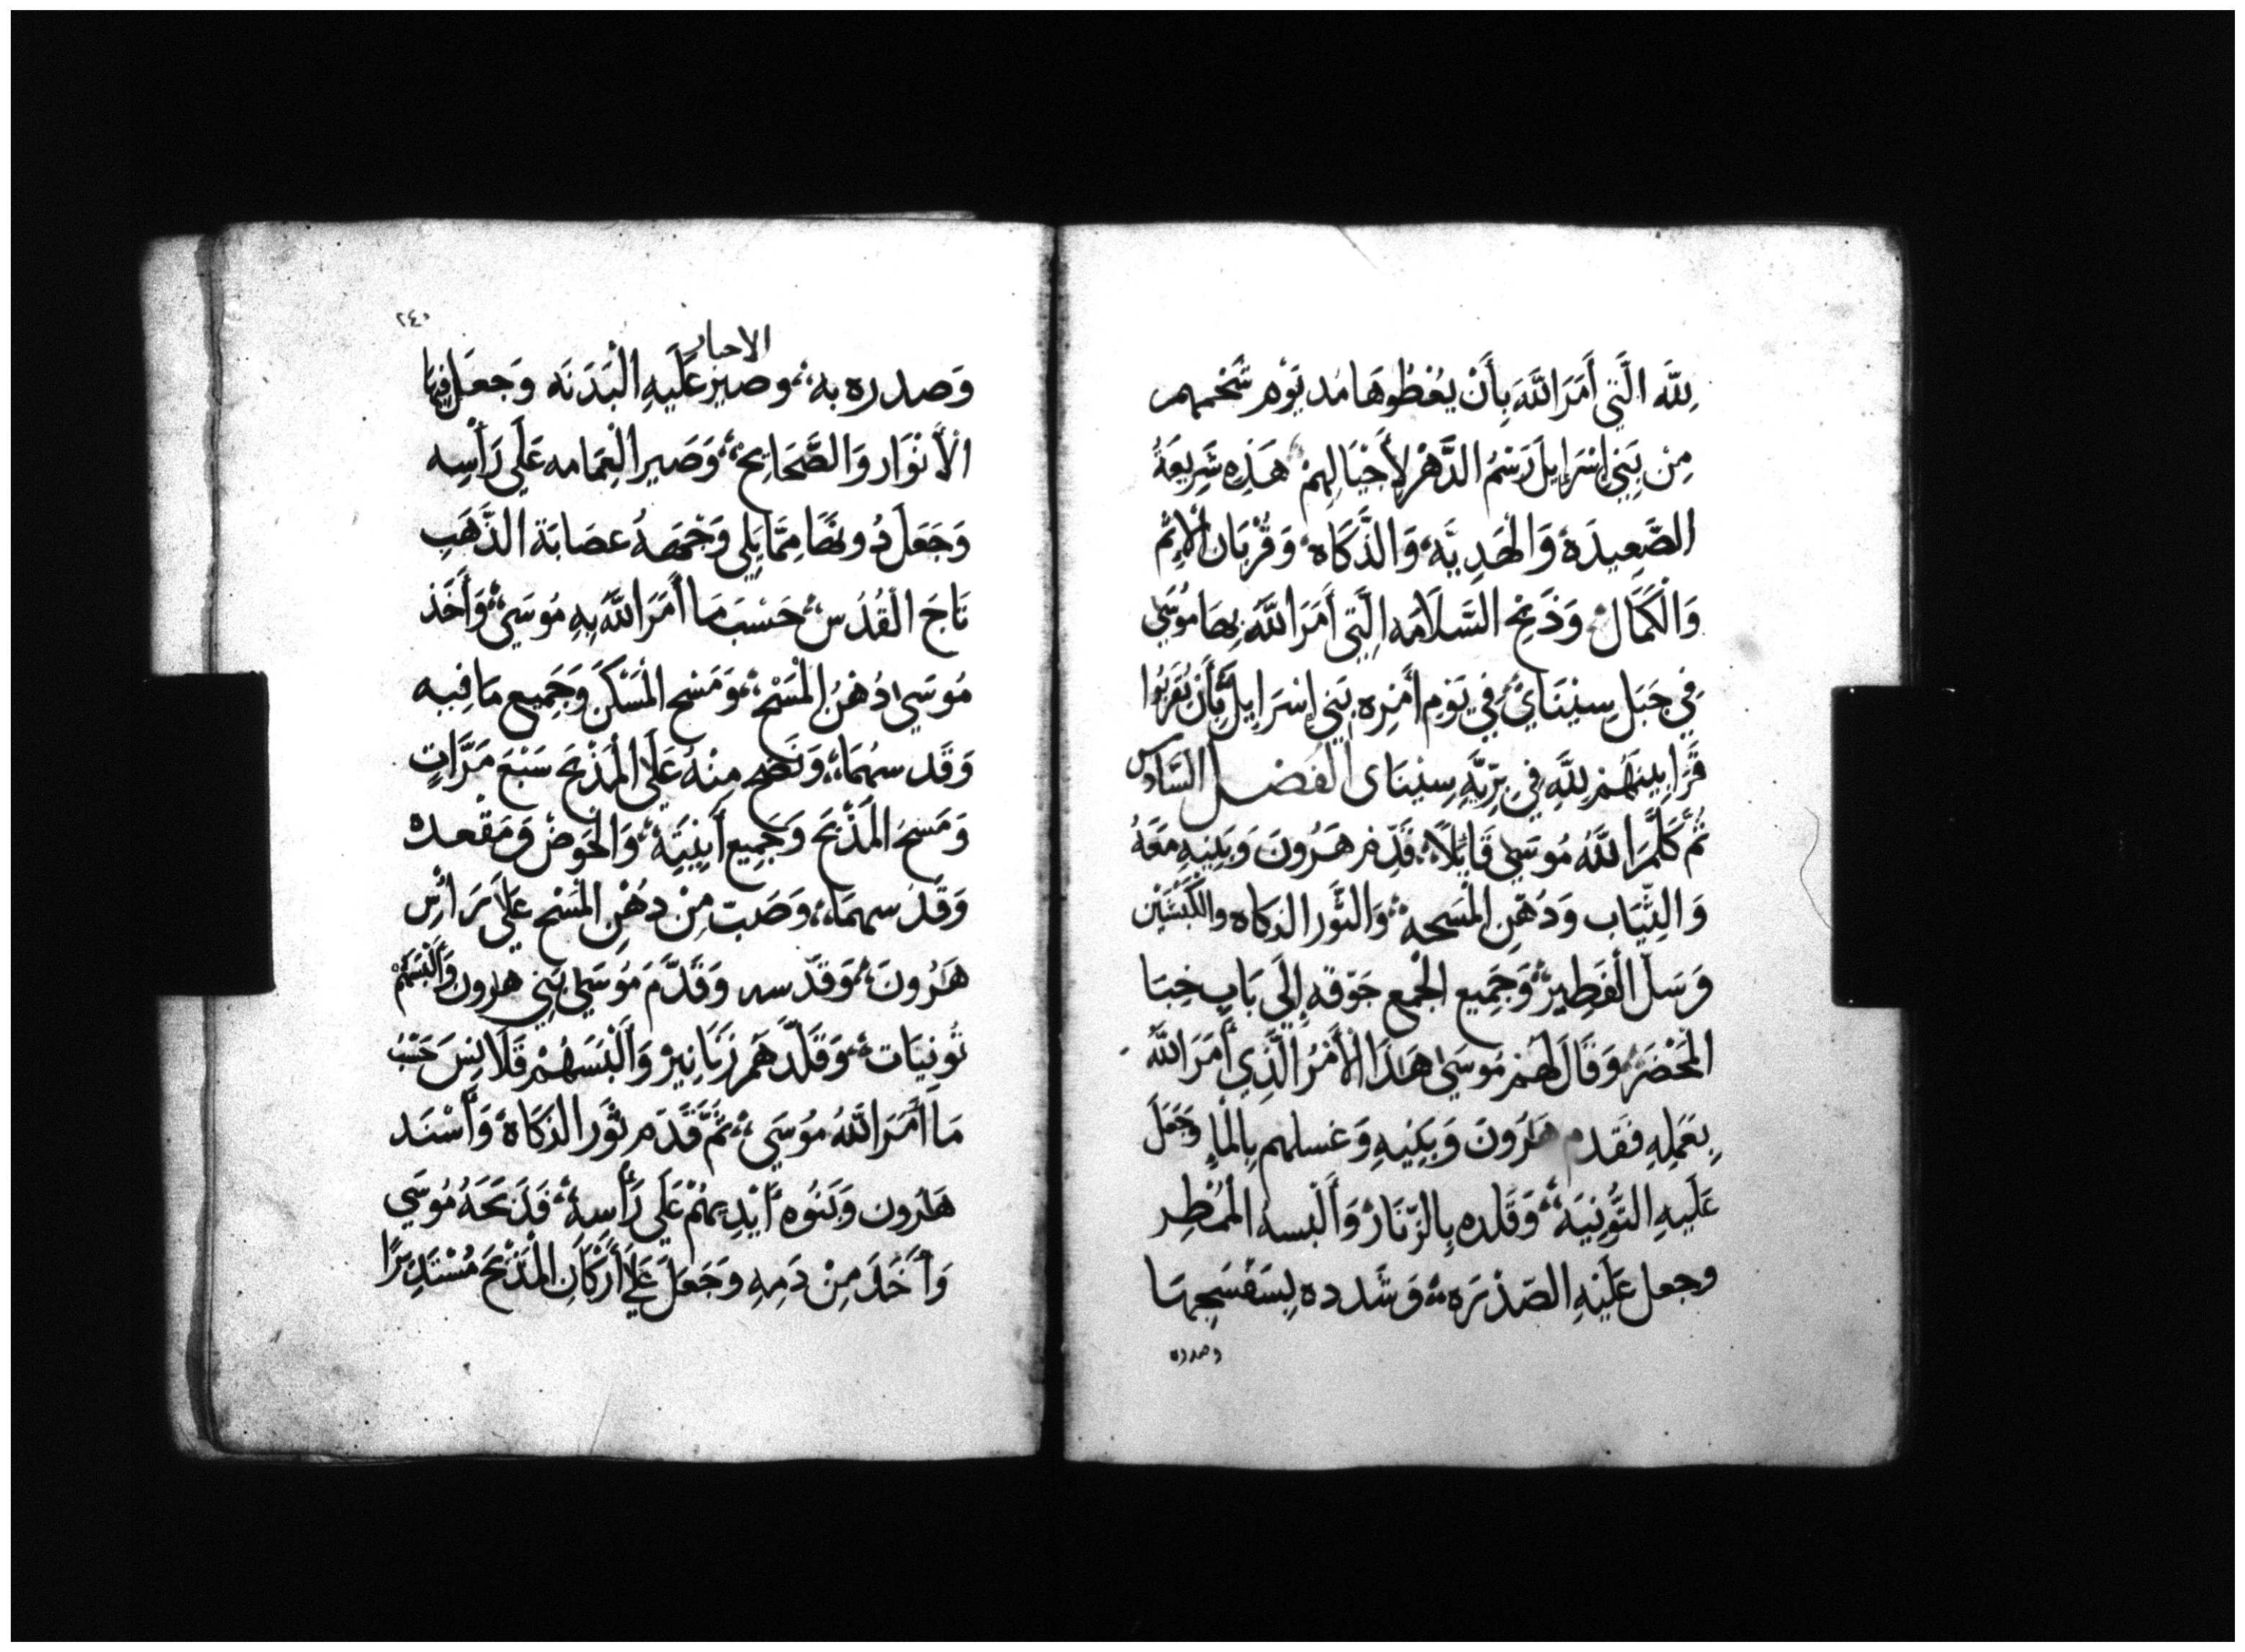 لِلَّه الَّتِي أَمَرَ اللَّهَ بِأَنْ يُعْطُوهَا مُد يَوْمِ مَسَحَهم
مِنْ بَنِي إِسْرَايِلَ رَسْمُ الدَّهْرِ لِأَجْيَالِهِمْ هَذِهِ شَرِيعَةُ
الصَّعِيدَة وَالهَدِيَّه وَالذَّكَاه وَقُرْبَان الإِثْم
وَالْكَمَال وَذَبْح السَّلَامَه الَّتِي أَمَرَ اللَّهُ بِهَا مُوسَى
فِي جَبَلِ سِينَايْ فِي يَوْمِ أَمْرِه بَنِي إِسْرَايِلَ بِأَنْ يُقَرِّبُوا
قَرَابِينَهُمْ لِلَّهِ فِي بَرِّيَّةِ سِينَاى الفصل السَّادس
ثُمَّ كَلَّمَ اللَّهُ مُوسَى قَائِلًا قَدِّم هَرُونَ وَبَنِيهِ مَعَهُ
وَالثِّيَاب وَدُهْنِ الْمَسحه وَالثَّور الذكاه والكَبْشَيْن
وَسَلّ الْفَطِيرْ وَجَمِيع الْجَمع جَوّقه إِلَي بَابِ خِبَا
الْمَحْضَرْ وَقَالَ لَهُمْ مُوسَى هَذَا الأَمْرُ الَّذِي أَمَرَ اللَّهُ
بِعَمَلِهِ فَقَدم هَرُونَ وَبَنِيهِ وَغسلهم بِالْمَاءِ وَجَعَلَ
عَلَيهِ التُّونِيَه وَقَلده بِالزّنَارْ وَأَلْبسه الْمُمْطِر
وجعل عَلَيْهِ الصّدْرَه وَشَدده بِنَسْجِهَا
وصدره
٢٤٠
الاحبار
وَصدره به وصير عَلَيهِ الْبَدَنَه وَجعَل فِيهَا
الْأَنْوَار وَالصَّحَايحْ وَصَير الْعِمَامه عَلَي رَأْسِه
وَجَعَلَ دُونهَا مِمَّا يَلِي وَجْهَهُ عصَابَة الذَّهَبِ
تَاجَ الْقُدُسْ حَسْبَ مَا أَمَرَ اللَّهُ بِهِ مُوسَي وَأَخَذ
مُوسَي دُهْنُ الْمَسْح وَمَسَح الْمَسْكَنَ وَجَمِيع مَا فِيه
وَقَدسهُمَا وَنَضَح مِنْهُ عَلَي الْمَذْبَح سَبْعَ مَرَّاتٍ
وَمَسَحَ الْمَذْبَحَ وَجَمِيع أَنِيَتِه وَالْحَوضْ وَمَقْعده
وَقَدسهمَا وَصَبّ مِنْ دُهْنِ الْمَسْح عَلَى رَأْسِ
هَرُونَ وَقَدّسه وَقَدَّمَ مُوسَي بَنِي هرون وَأَلْبَسَهُمْ
تُونِيَات وَقَلَّدَهَم زَنَانِيرْ وَأَلْبَسَهُمْ قَلَانِسَ حَسْبُ
مَا أَمَرَ اللَّهُ مُوسَي ثُمَّ قَدَّم ثَور الذكَاة وَأَسْنَد
هَرون وَبَنُوه أَيْدِيهُمْ عَلَي رَأْسِه فَذَبَحَهُ مُوسَي
وَأَخَذَ مِنْ دَمِهِ وَجَعَلَ عَلَى أَرْكَانِ الْمَذْبَح مُسْتَدِيرًا